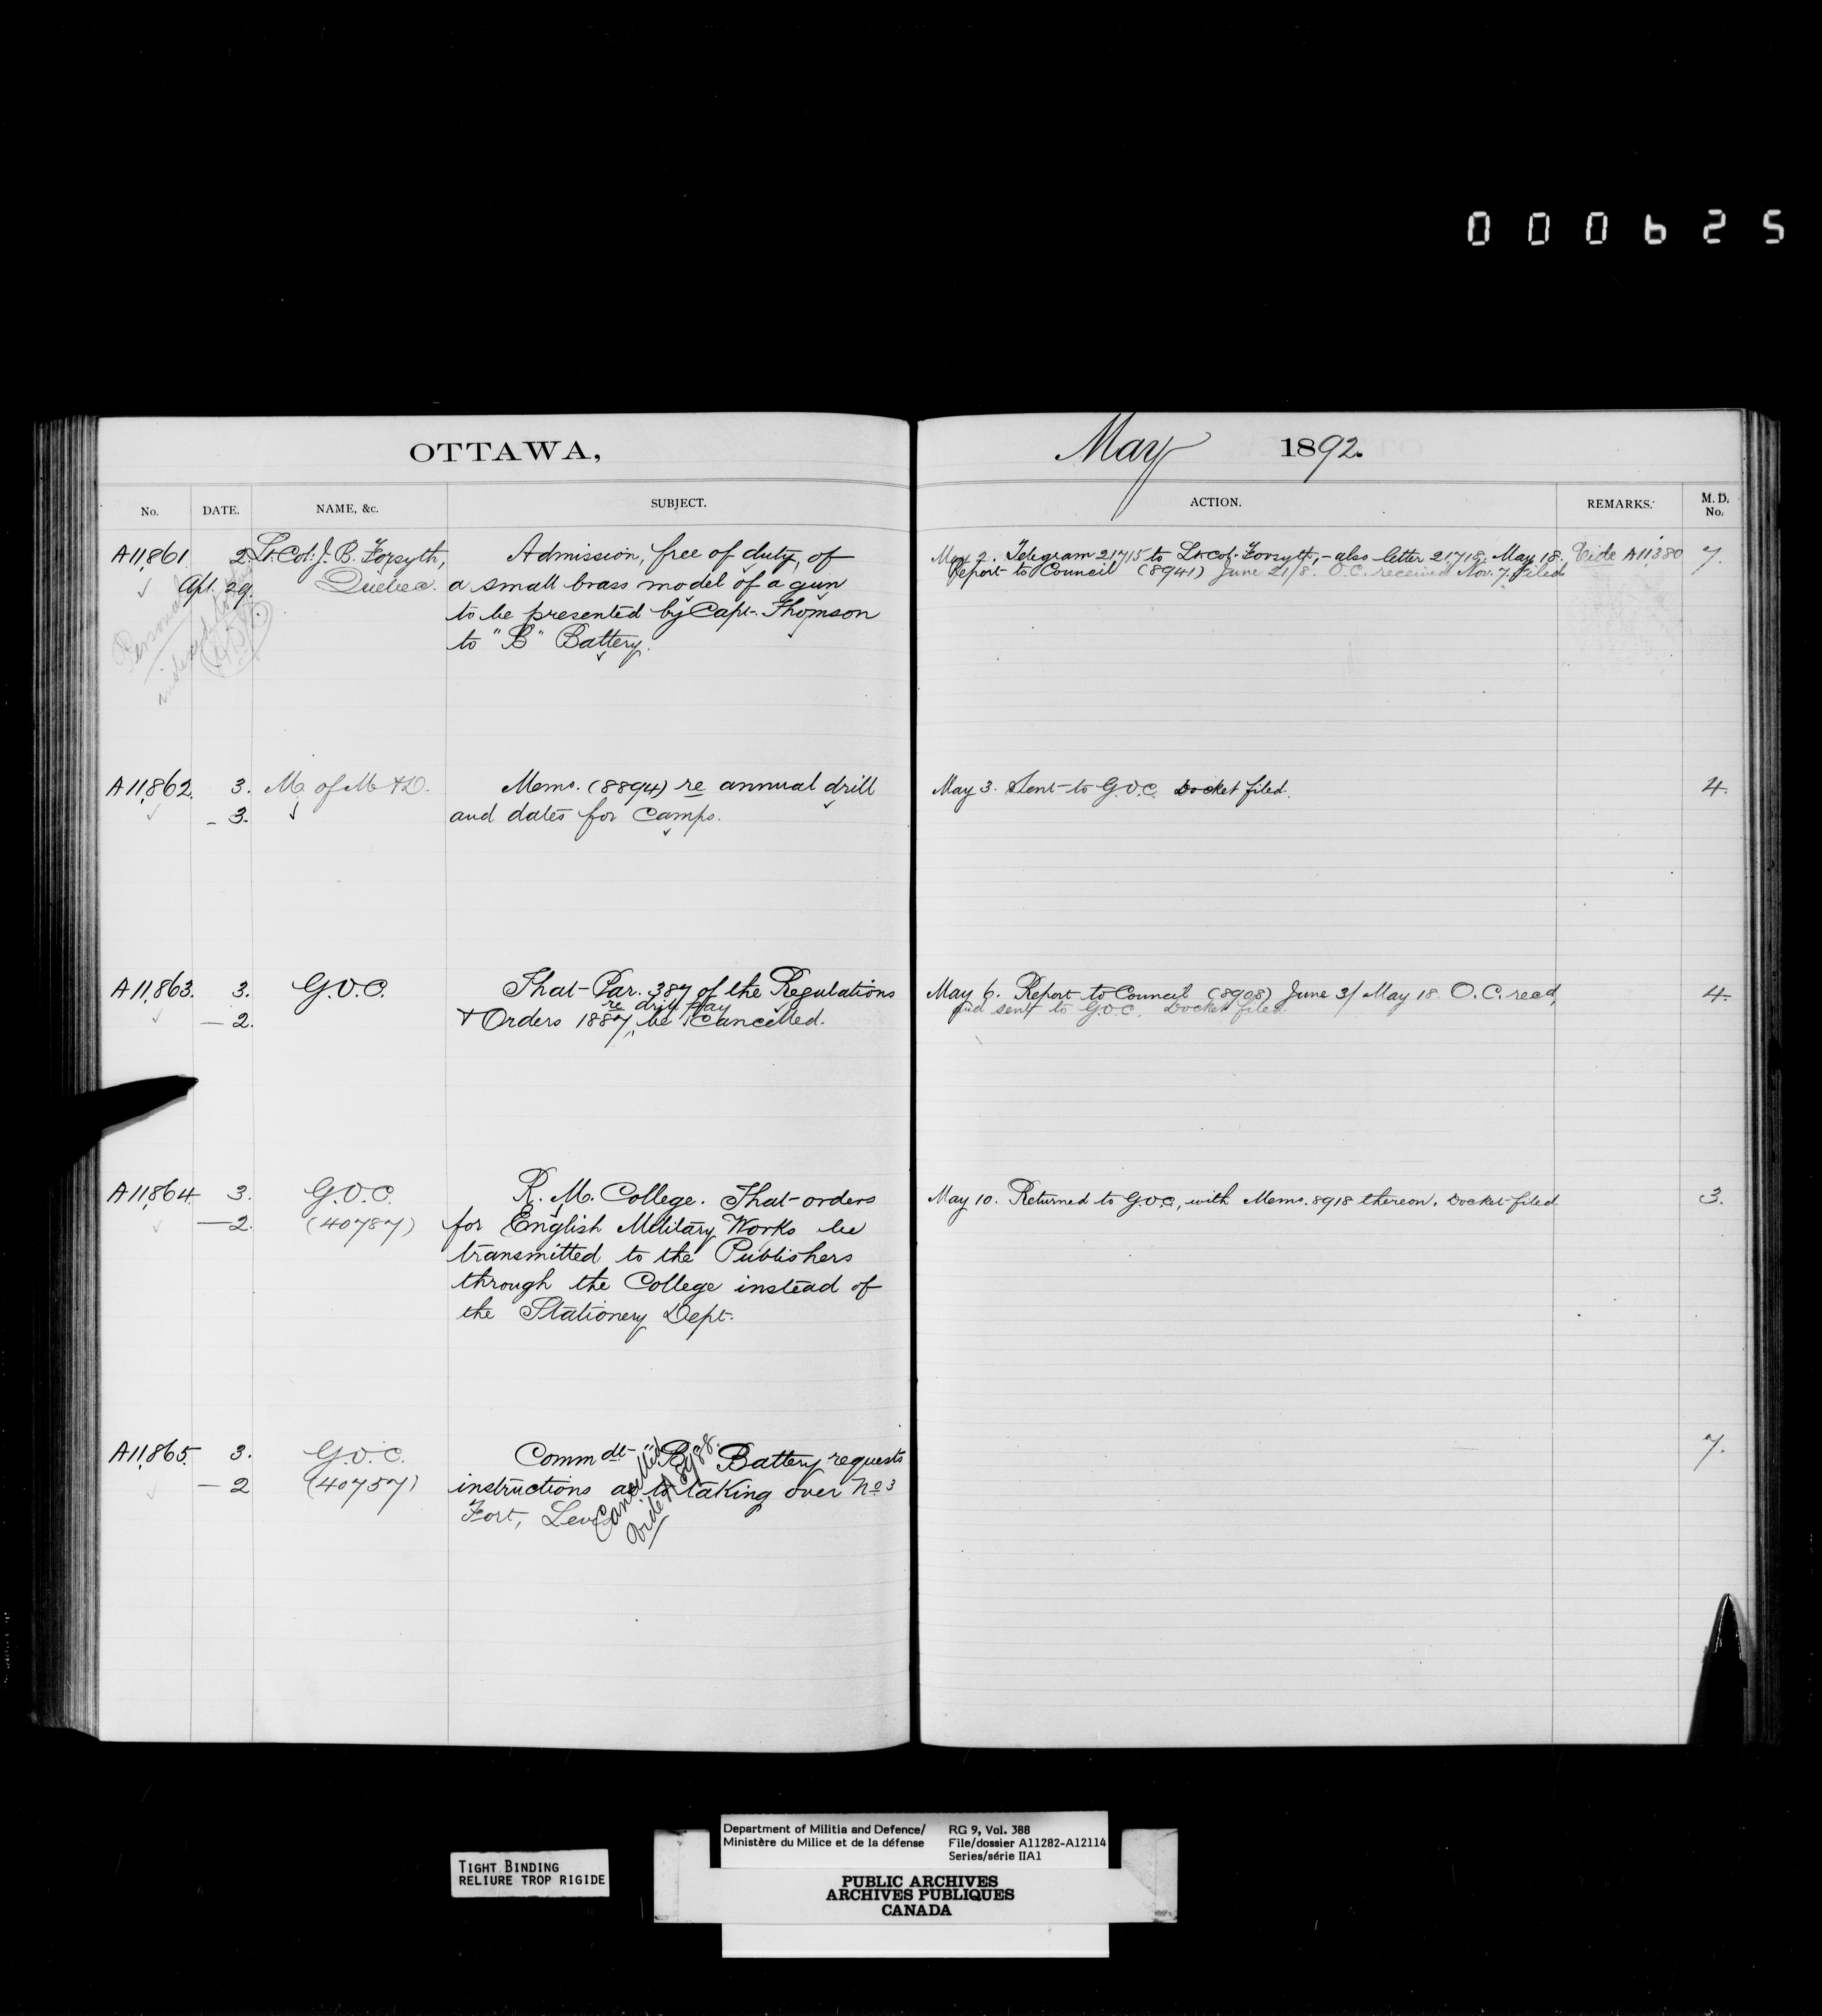 000625
OTTAWA,
May 1892.
No. DATE. NAME, &c. SUBJECT. ACTION. REMARKS. M.D. No.
A11,861 2. Lt. Col: J. B. Forsyth, Admission, free of duty, of
Apl. 29. Quebec. a small brass model of a gun
to be presented by Capt. Thomson
to "B" Battery.
Personal
May 2. Telegram 21715 to Lt Col. Forsyth, - also letter 21718. May 18. Vide A11380 7.
Report to Council (8941) June 21/8. O.C. received Nov. 7. Filed
A11,862. 3. M. of M & D. Memo. (8894) re annual drill
- 3. and dates for Camps.
May 3. Sent to G.O.C. Docket filed. 4.
A11,863. 3. G.O.C. That Par. 387 of the Regulations
re drill pay
— 2. & Orders 1887, be cancelled.
May 6. Report to Council (8908) June 3/ May 18. O.C. recd, 4.
and sent to G.O.C. Docket filed
A11,864 3. G.O.C. R. M. College. That orders
— 2. (40787) for English Military Works be
transmitted to the Publishers
through the College instead of
the Stationery Dept.
May 10. Returned to G.O.C, with Memo. 8918 thereon. Docket filed 3.
A11,865. 3. G.O.C. Commdt "B" Battery requests
— 2 (40757) instructions as to taking over No 3
Fort, Levis
Cancelled
Vide A 8988.
7.
TIGHT BINDING
RELIURE TROP RIGIDE
Department of Militia and Defence/
Ministère du Milice et de la défense
RG 9, Vol. 388
File/dossier A11282-A12114
Series/série IIA1
PUBLIC ARCHIVES
ARCHIVES PUBLIQUES
CANADA